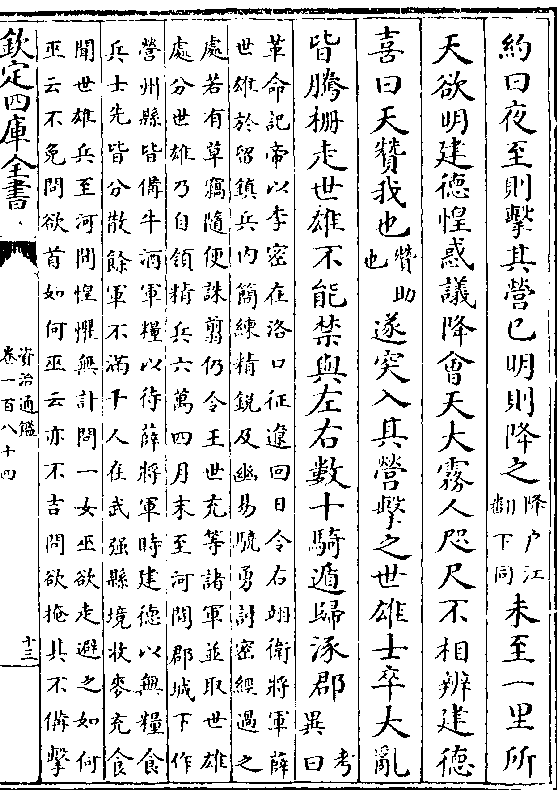 約曰夜至則擊其營已明則降之降户江翻下同未至一里所
天欲明建德惶惑議降會天大霧人咫尺不相辨建德
喜曰天贊我也贊助也遂突入其營擊之世雄士卒大亂
皆騰柵走世雄不能禁與左右數十騎遁歸涿郡考異曰
革命記帝以李密在洛口征遼回日令右翊衛將軍薛
世雄於留鎮兵内簡練精鋭及幽易驍勇討密經過之
處若有草竊隨便誅剪仍令王世充等諸軍並取世雄
處分世雄乃自領精兵六萬四月末至河間郡城下作
營州縣皆備牛酒軍糧以待薛將軍時建德以無糧食
兵士先皆分散餘軍不滿千人在武强縣境收麥充食
聞世雄兵至河間惶懼無計問一女巫欲走避之如何
巫云不免問欲首如何巫云亦不吉問欲掩其不備擊
欽定四庫全書
資治通鑑
卷一百八十四
十三